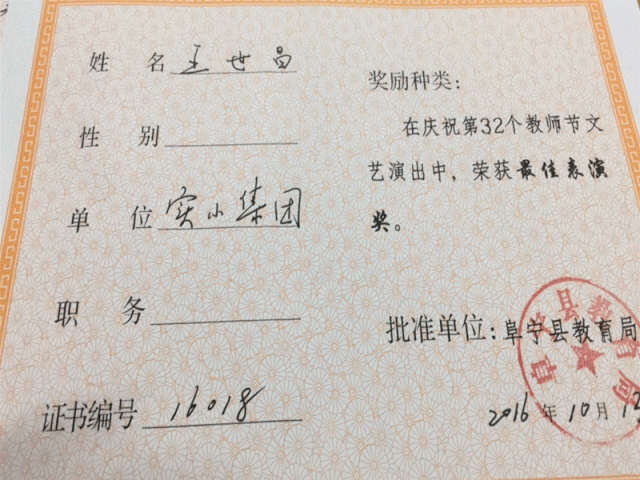 姓 名 王世昌
性 别
单 位 实小集团
职 务
证书编号 16018
奖励种类:
在庆祝第32个教师节文
艺演出中，荣获最佳表演
奖。
批准单位: 阜宁县教育局
2016 年 10 月
阜宁县教育局